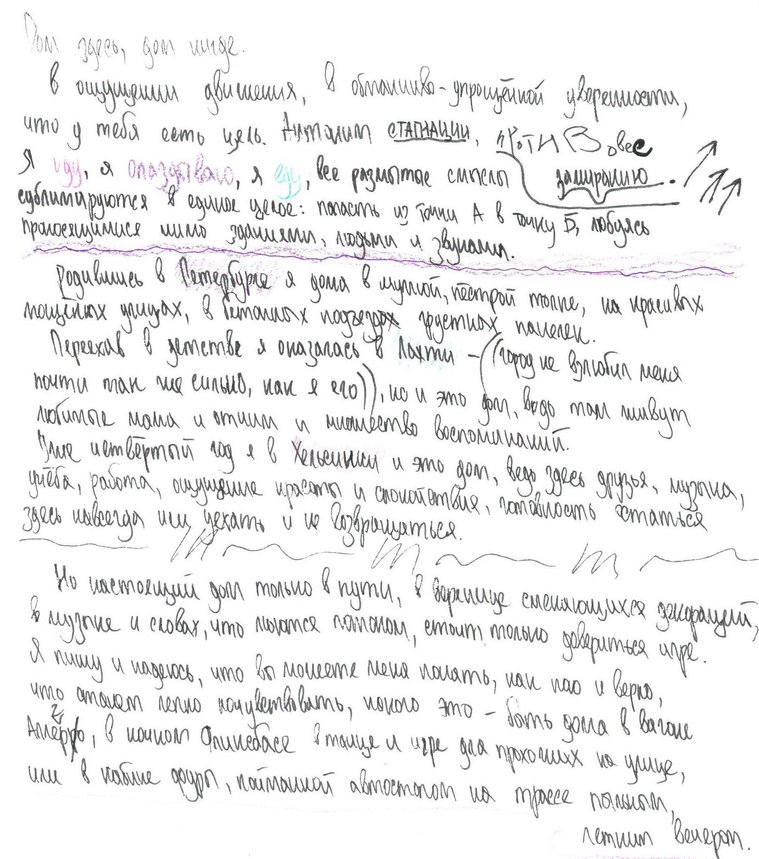 Дом здесь, дом нигде.
В ощущении движения, в обманчиво-упрощённой уверенности,
что у тебя есть цель. Антоним СТАГНАЦИИ, проти Вовес
замиранию.
Я иду, я опаздываю, я еду, все размытые смыслы
сублимируются в единое целое: попасть из точки А в точку Б, любуясь
проносящимися мимо зданиями, людьми и звуками.
Родившись в Петербурге я дома в шумной, пёстрой толпе, на красивых
мощёных улицах, в подъездах грустных панелек.
Переехав в детстве я оказалась в Лахти - (город не взлюбил меня
почти так же сильно, как я его), но и это дом, ведь там живут
любимые мама и отчим и множество воспоминаний.
Уже четвёртый год я в Хельсинки и это дом, ведь здесь друзья, музыка,
учёба, работа, ощущение красоты и спокойствия, готовность остаться
здесь навсегда или уехать и не возвращаться.
Но настоящий дом только в пути, в веренице сменяющихся декораций,
в музыке и словах, что льются потоком, стоит только довериться игре.
Я пишу и надеюсь, что вы можете меня понять, как и верно,
что станет легко почувствовать, каково это - быть дома в вагоне
в ночном Фликсбасе в танце и игре для прохожих на улице,
или в кабине фуры, пойманной автостопом на трассе
летним вечером.